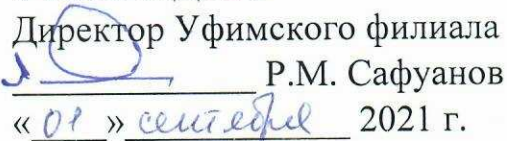 Директор Уфимского филиала
Р.М. Сафуанов
« 01 » сентября 2021 г.